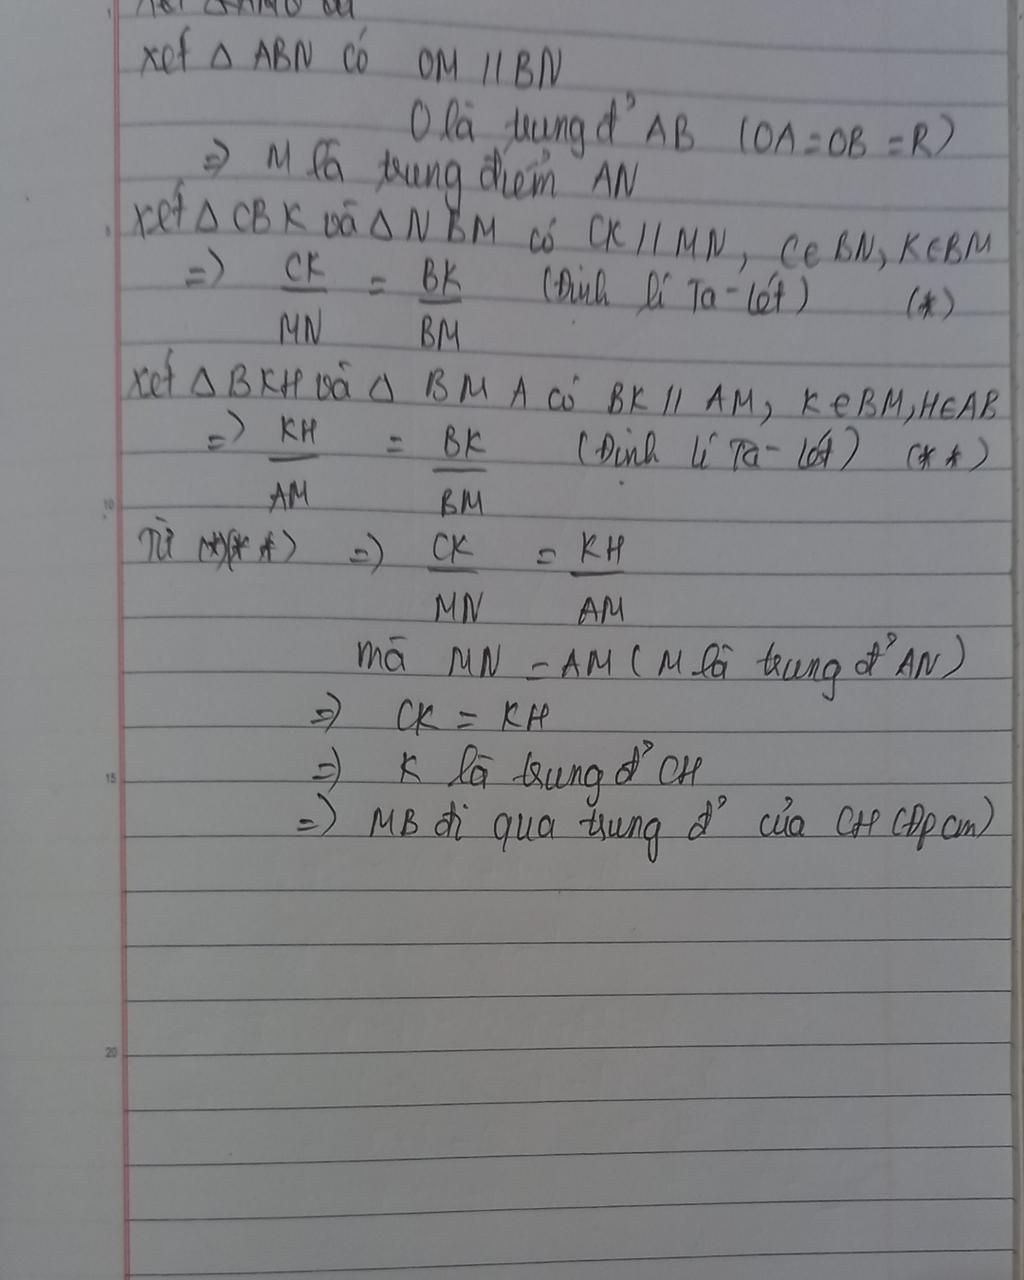 xét Δ ABN có OM // BN
O là trung đ' AB (OA = OB = R)
=> M là trung điểm AN
xét Δ CBK và Δ NBM có CK // MN, C∈BN, K∈BM
=> CK/MN = BK/BM (Định lí Ta-lét) (*)
xét Δ BKH và Δ BMA có BK // AM, K∈BM, H∈AB
=> KH/AM = BK/BM (Định lí Ta-lét) (**)
Từ (*)(**) => CK/MN = KH/AM
mà MN = AM (M là trung đ' AN)
=> CK = KH
=> K là trung đ' CH
=> MB đi qua trung đ' của CH (Đpcm)
10
15
20